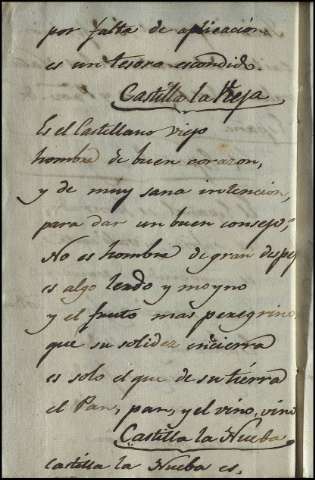 por falta de aplicación
es un tesoro escondido.
Castilla la Vieja
Es el Castellano viejo
hombre de buen corazon,
y de muy sana intencion,
para dar un buen consejo;
No es hombre de gran despej
es algo lerdo y moyno
y el fruto mas peregrino,
que su solidez encierra
es solo el que de su tierra
el Pan, pan, y el vino, vino
Castilla la Nueba
Castilla la Nueba es,